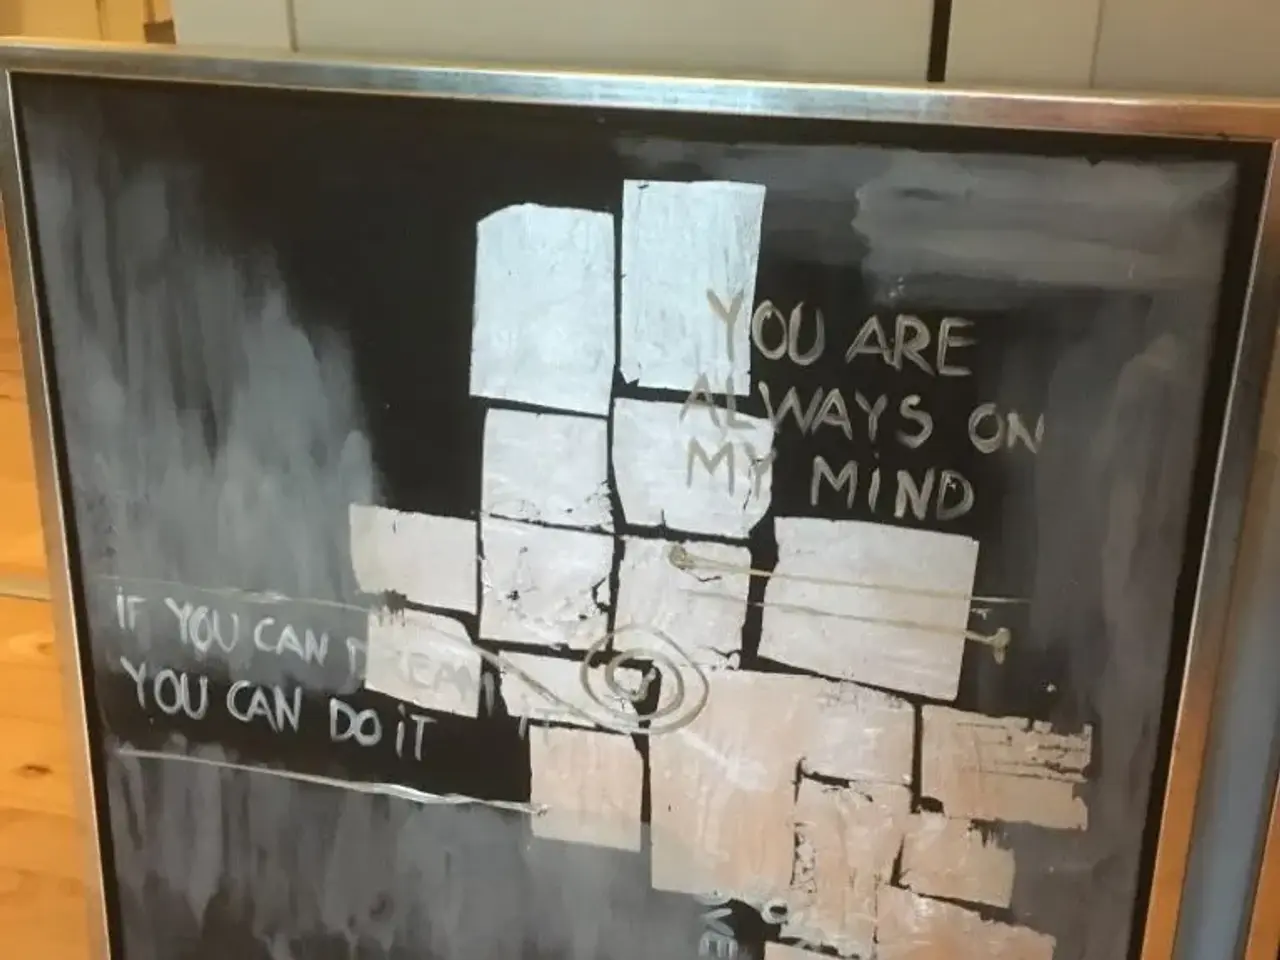 YOU ARE
ALWAYS ON
MY MiND
iF YOU CAN DREAM iT
YOU CAN DO iT